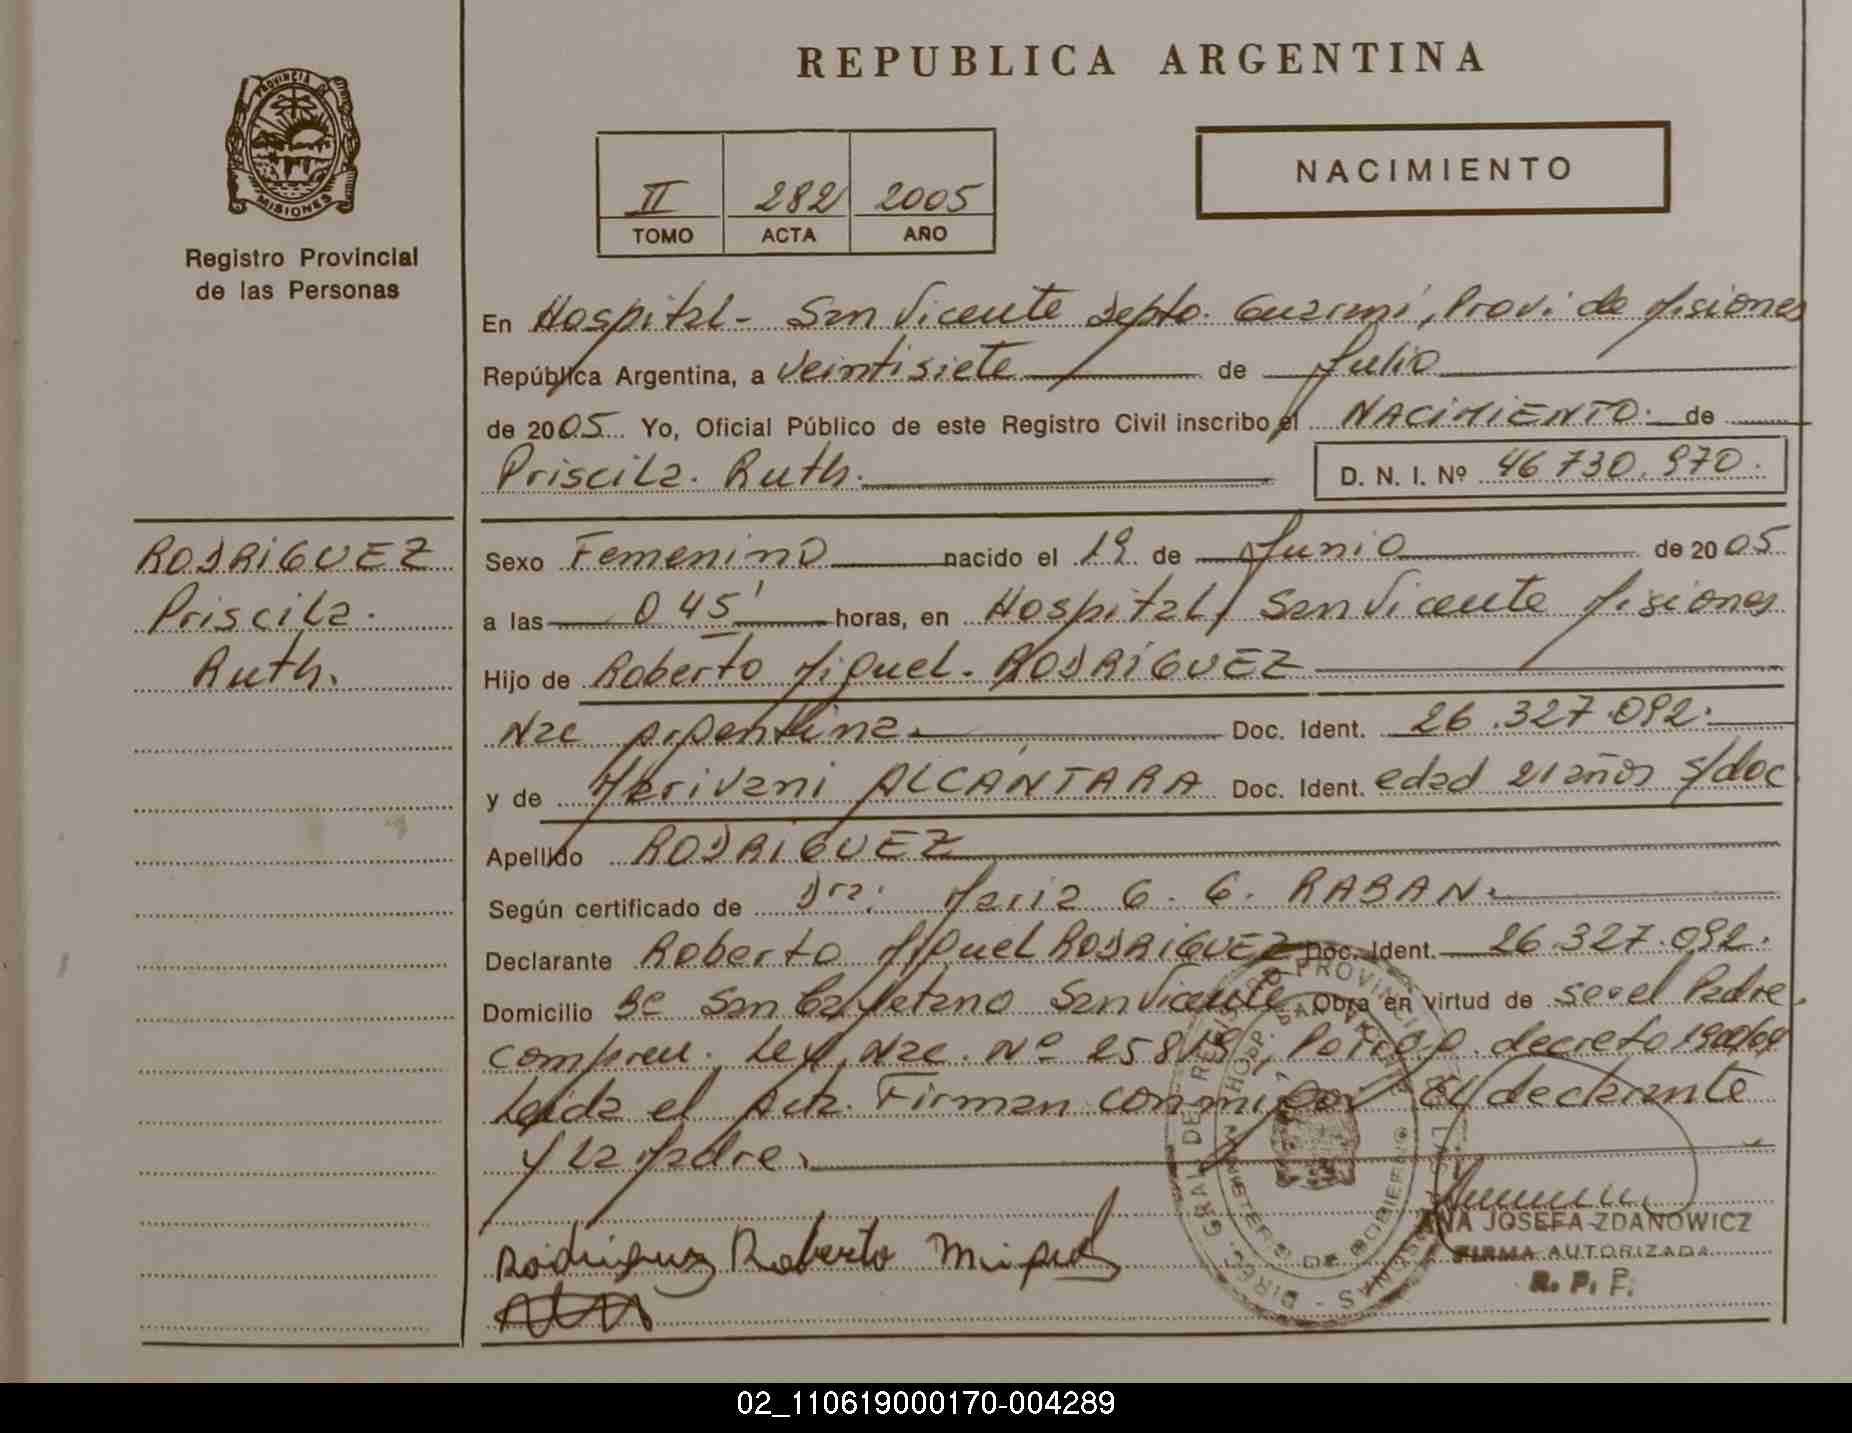 REPUBLICA ARGENTINA
PROVINCIA DE
MISIONES
Registro Provincial
de las Personas
II 282 2005
TOMO ACTA AÑO
NACIMIENTO
En Hospital - San Vicente Depto. Guarani, Provi. de Misiones
República Argentina, a Veintisiete de Julio
de 2005 Yo, Oficial Público de este Registro Civil inscribo el NACIMIENTO. de
Priscila. Ruth. D. N. I. Nº 46 730.970.
RODRIGUEZ
Priscila.
Ruth.
Sexo Femenino nacido el 19 de Junio de 2005
a las 0 45' horas, en Hospital, San Vicente Misiones
Hijo de Roberto Miguel. RODRIGUEZ
Nac Argentina. Doc. Ident. 26.327.092.
y de Marivani ALCANTARA Doc. Ident. edad 21 años s/doc
Apellido RODRIGUEZ
Según certificado de Dra: Maria G. G. RABAN.
Declarante Roberto Miguel RODRIGUEZ Doc. Ident. 26.327.092.
Domicilio Bº San Cayetano San Vicente. Obra en virtud de ser el Padre.
compren. Ley Nac. Nº 25819, decreto
Leida el Acta. Firman conmigo El declarante
y la Madre.
Rodriguez Roberto Miguel
ANA JOSEFA ZDANOWICZ
FIRMA AUTORIZADA
R. P. P.
DIREC. GRAL. DE REGISTRO PROVINCIAL DE LAS PERSONAS
HOSP. SAN VICENTE
MINISTERIO DE GOBIERNO
02_110619000170-004289